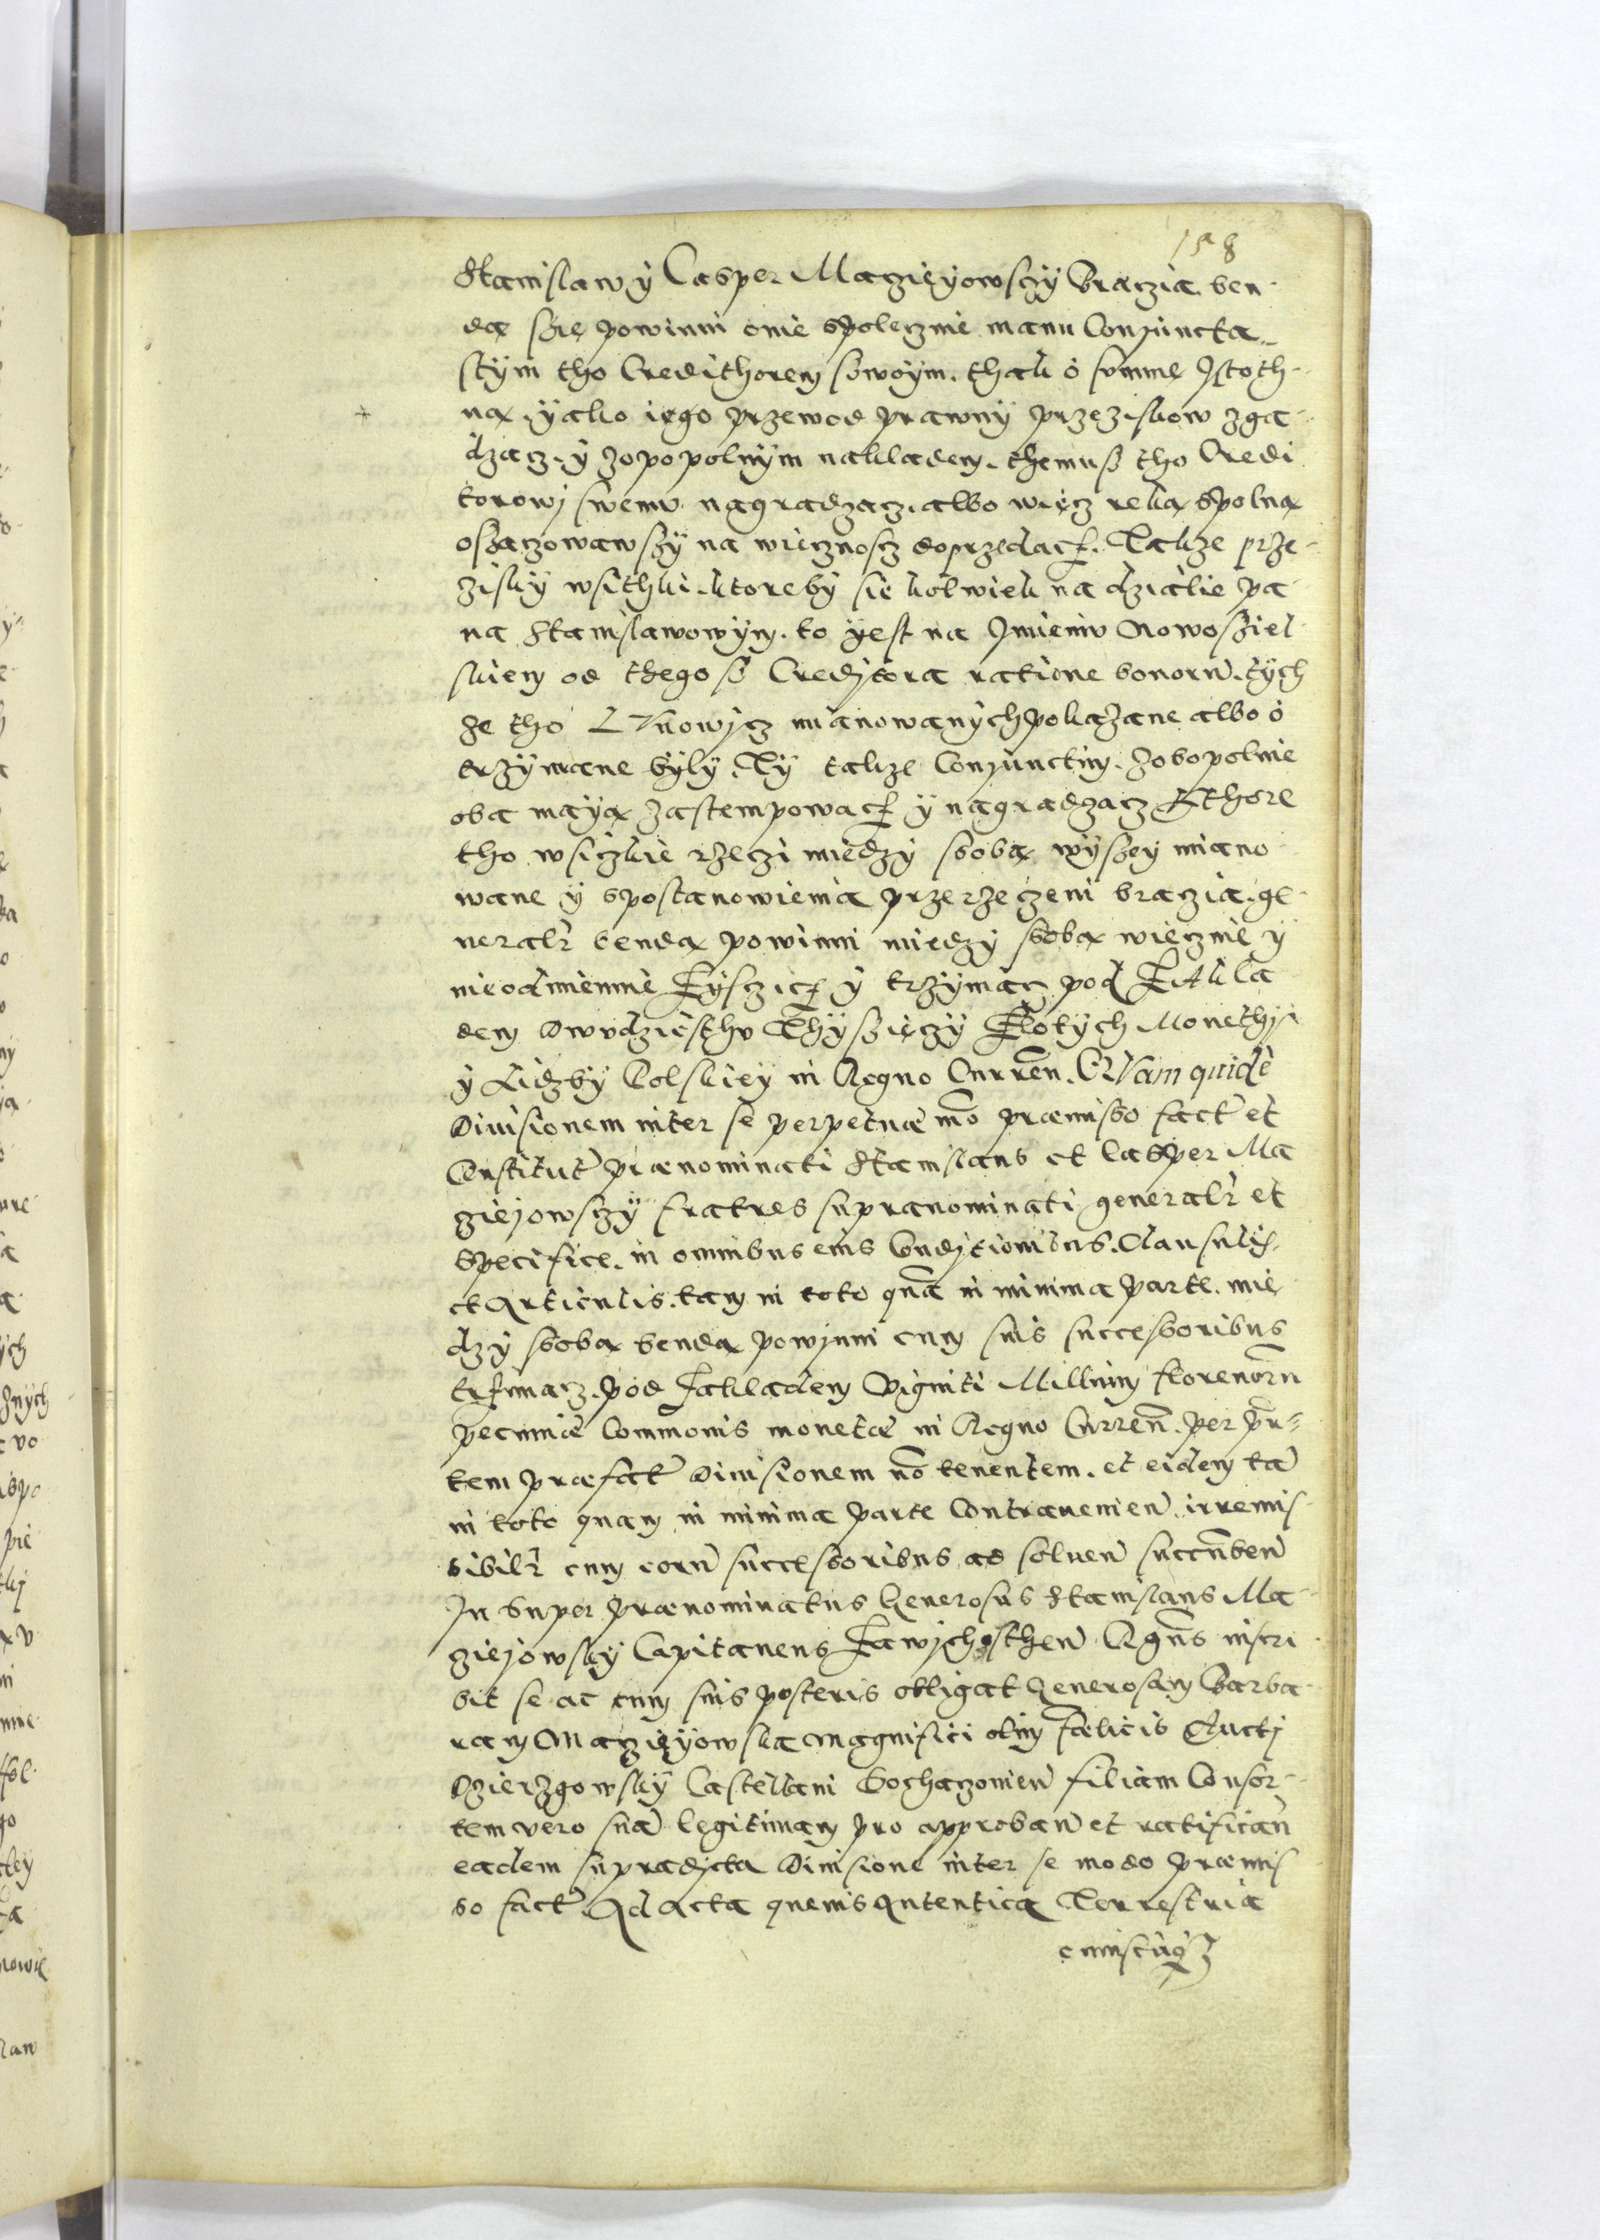 158
Stanislaw ÿ Casper Maczięÿowsczÿ Braczia. ben-
dą szię powinni onie społecznie manu Conjuncta
stÿm tho Credithorem swoÿm. thak o summę Istoth-
ną, ÿako iego przewod prawnÿ przeziskow zga-
dzacz. ÿ zopopolnÿm nakladem. themusz tho Credi
torowj swemv nagradzacz. albo więcz reką spolną
oszaczowawszÿ na wiecznoscz doprzedacz. Takze prze-
ziskÿ wsithki. ktorebÿ sie kolwiek na dzialie pa
na Stanislawowÿm. to ÿest na Imieniv Nowosziel-
skiem od thegosz Creditora ratione bonorũ. tÿch
ze tho mianowanÿch pokazane albo o
trzÿmane bÿlÿ. Tÿ takze Conjunctim. zobopolnie
oba maÿą zastempowacz ÿ nagradzacz Kthore
tho wsiczkie rzeczi miedzÿ sbobą wÿszeÿ miano
wane ÿ spostanowienia przerzeczeni braczia. ge-
neralr̃ bendą powinni miedzÿ sobą wiecznie ÿ
nieodmiennie ziscicz ÿ trzÿmacz pod zakla
dem Dwvdziesthv Thÿszięczÿ zlotÿch Monethÿ
ÿ Lidzbÿ Polskieÿ in Regno Curren̄. QVam quidẽ
Diuisionem inter se perpetuæ mo̅ præmisso fact̃ et
Constitut̃ prænominati Stanislaus et Casper Ma
ziejowsczÿ fratres supranominati generalr̃ et
specifice. in omnibus eius Conditionibus. Clausulis.
et Articulis. tam in toto quã in minima parte. mie
dzÿ sbobą bendą powinni cum suis successoribus
trzimacz. pod zakladem Viginti Millium florenorũ
pecuniæ Communis monetæ in Regno Curren̄. per par=
tem præfat̃ Diuisionem no̅ tenentem. et eidem tã
in toto quam in minima parte Contrauenien̄. irremis-
sibilr̃ cum eorũ successoribus ad soluen̄ succũben̄
In super prænominatus Generosus Stanislaus Ma-
ziejowskÿ Capitaneus zawjchosthen̄ Rg̃ns inscri
bit se ac cum suis posteris obligat Generosam Barba-
ram Maczięÿowska Magnifici olim fælicis Aucti
Dzierzgowskÿ Castellani Sochaczouien̄ filiam Consor-
tem vero suã legitimam pro approban̄ et ratifican̄
eadem supradicta Diuisione inter se modo præmis
so fact̃. Ad Acta queuis Autentica Terrestria
cuiuscũq3